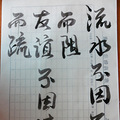 流水不因
而阻
友谊不因
而疏